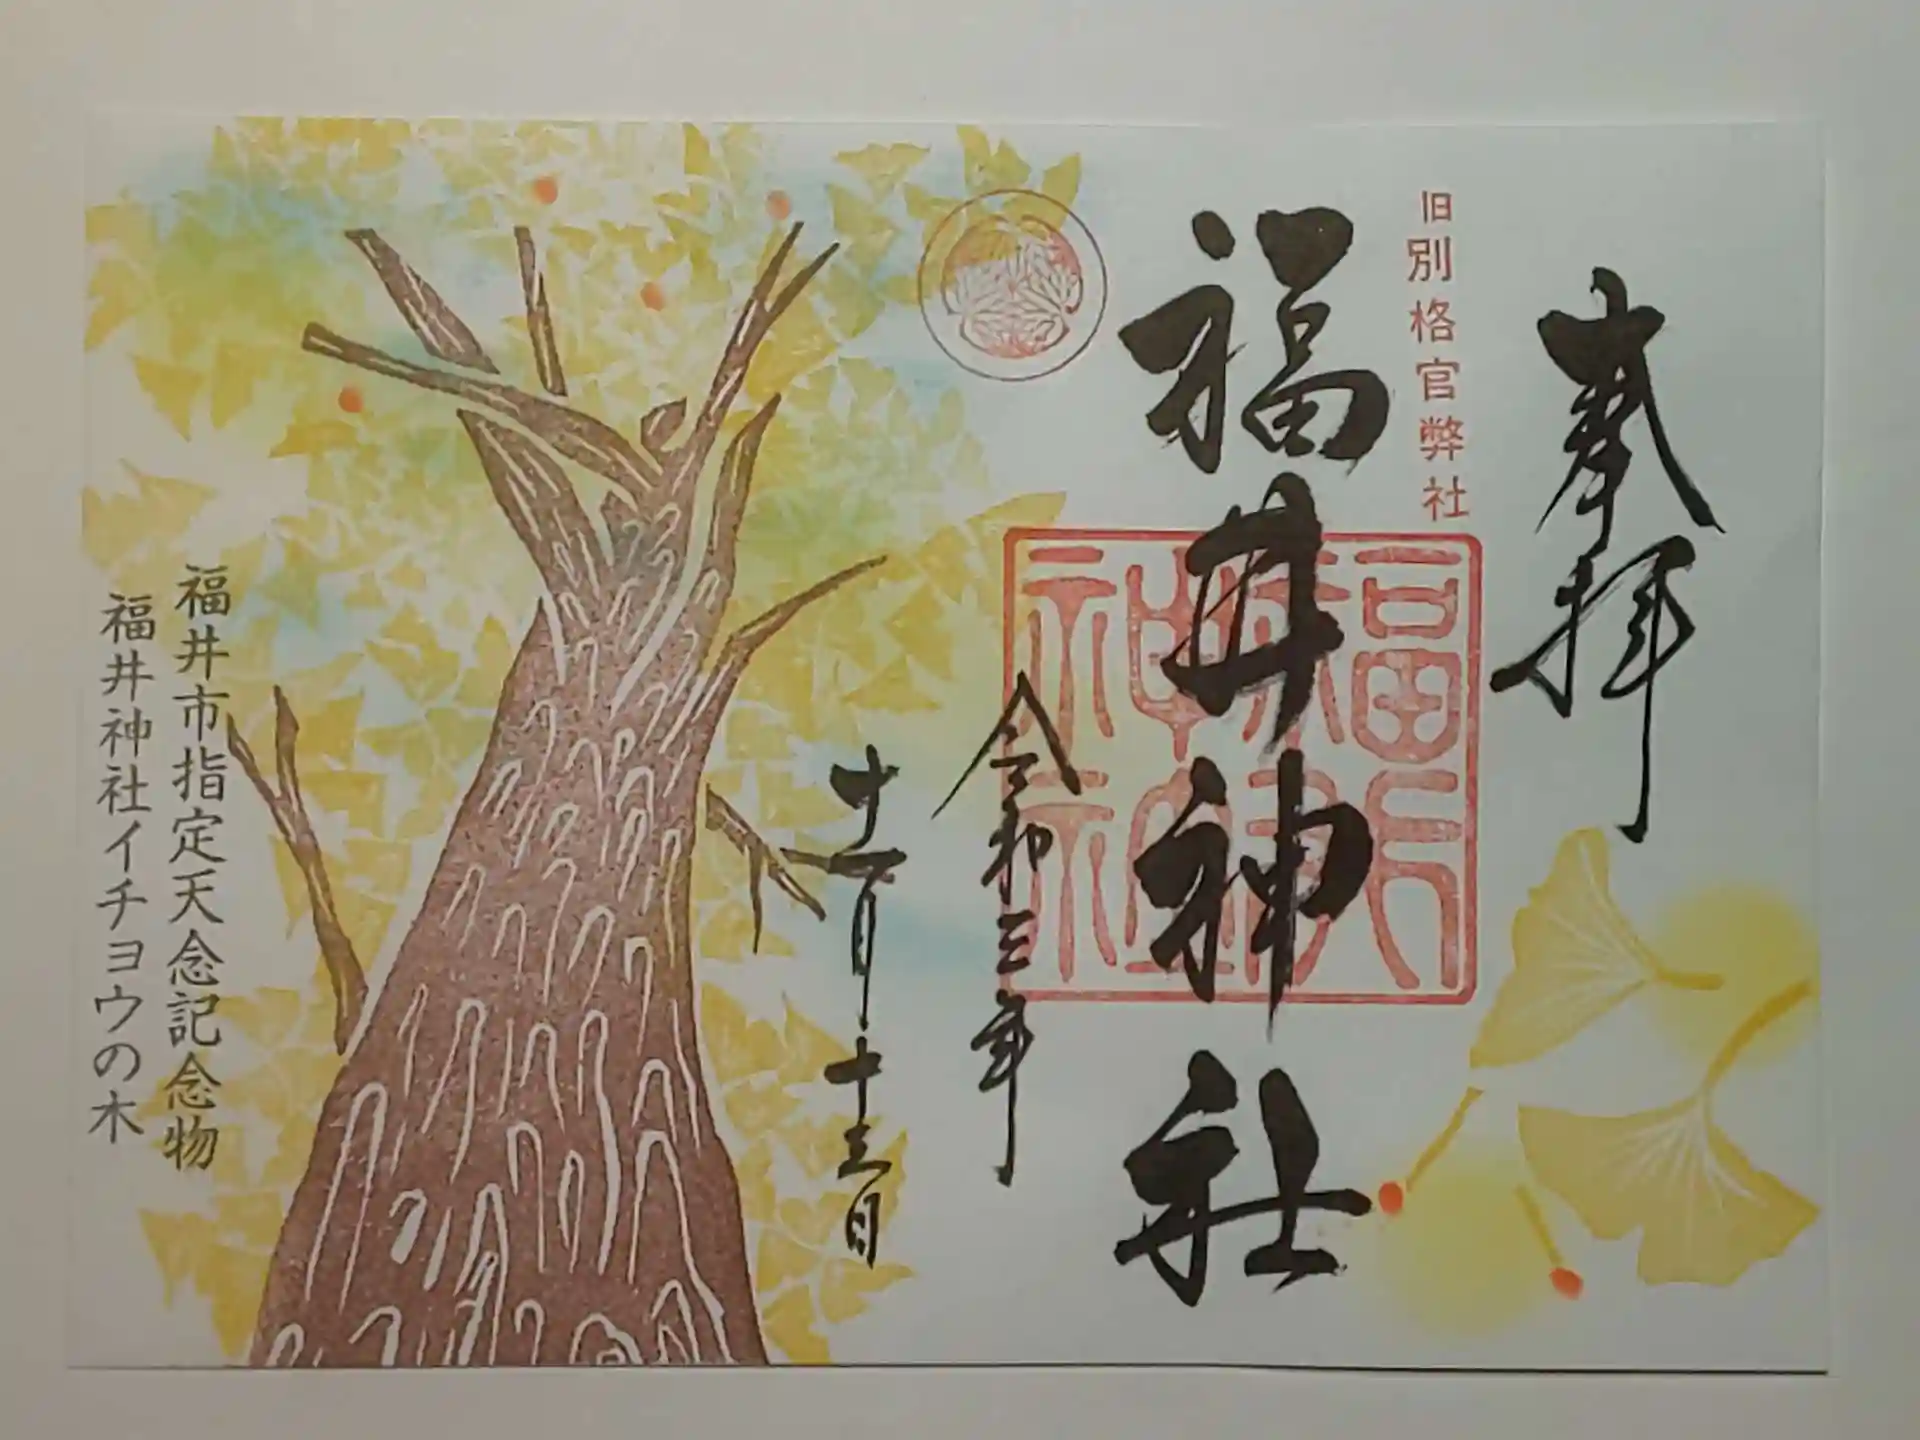 奉拝
旧別格官弊社
福井神社
福井神社
令和三年
十一月十三日
福井市指定天然記念物
福井神社イチョウの木